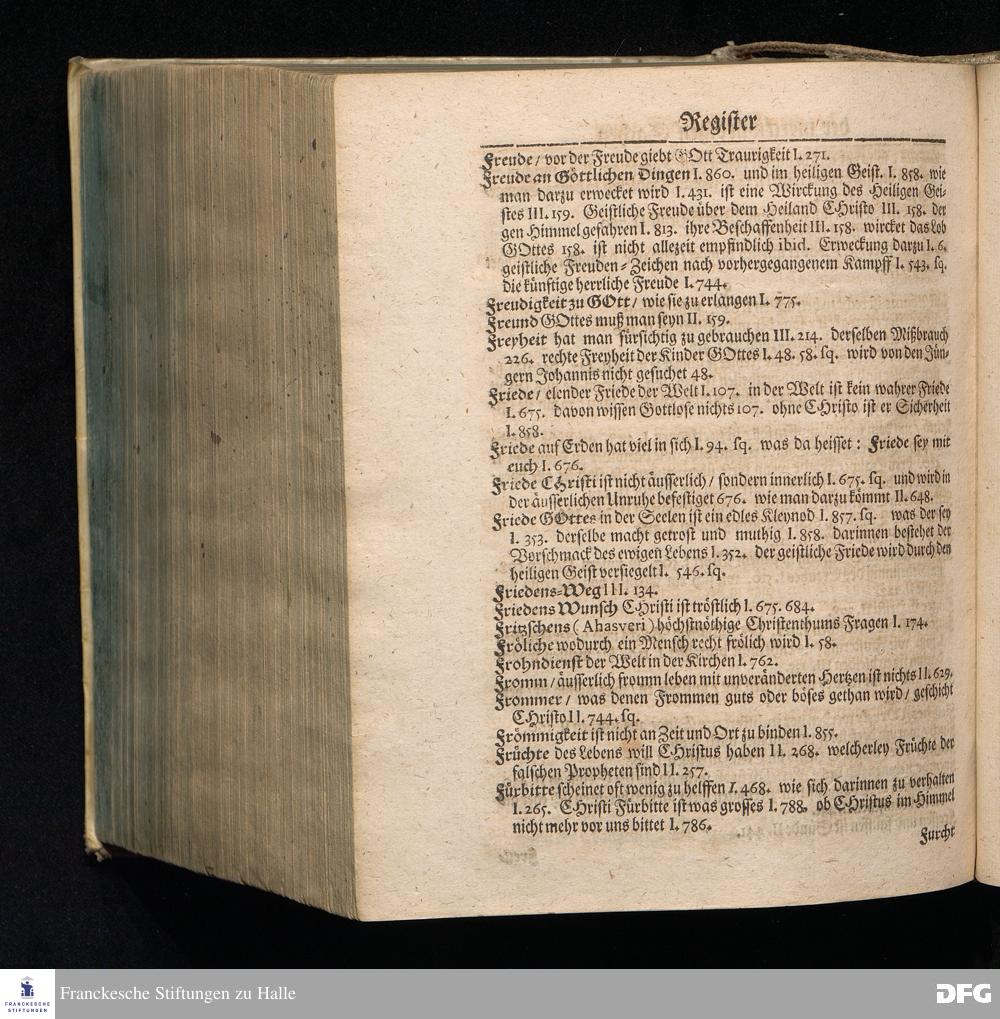 Register
Freude / vor der Freude giebt GOtt Traurigkeit I. 271.
Freude an Göttlichen Dingen I. 860. und im heiligen Geist. I. 858. wie
man darzu erwecket wird I. 431. ist eine Wirckung des Heiligen Gei-
stes III. 159. Geistliche Freude über dem Heiland CHristo III. 158. der
gen Himmel gefahren I. 813. ihre Beschaffenheit III. 158. wircket das Lob
GOttes 158. ist nicht allezeit empfindlich ibid. Erweckung darzu I. 6.
geistliche Freuden-Zeichen nach vorhergegangenem Kampff I. 543. sq.
die künftige herrliche Freude I. 744.
Freudigkeit zu GOtt / wie sie zu erlangen I. 775.
Freund GOttes muß man seyn II. 159.
Freyheit hat man fürsichtig zu gebrauchen III. 214. derselben Mißbrauch
226. rechte Freyheit der Kinder GOttes I. 48. 58. sq. wird von den Jün-
gern Johannis nicht gesuchet 48.
Friede / elender Friede der Welt I. 107. in der Welt ist kein wahrer Friede
I. 675. davon wissen Gottlose nichts 107. ohne CHristo ist er Sicherheit
I. 858.
Friede auf Erden hat viel in sich I. 94. sq. was da heisset : Friede sey mit
euch I. 676.
Friede CHristi ist nicht äusserlich / sondern innerlich I. 675. sq. und wird in
der äusserlichen Unruhe befestiget 676. wie man darzu kömmt II. 648.
Friede GOttes in der Seelen ist ein edles Kleynod I. 857. sq. was der sey
I. 353. derselbe macht getrost und muthig I. 858. darinnen bestehet der
Vorschmack des ewigen Lebens I. 352. der geistliche Friede wird durch den
heiligen Geist versiegelt I. 546. sq.
Friedens-Weg III. 134.
Friedens Wunsch CHristi ist tröstlich I. 675. 684.
Fritzschens (Ahasveri) höchstnöthige Christenthums Fragen I. 174.
Fröliche wodurch ein Mensch recht frölich wird I. 58.
Frohndienst der Welt in der Kirchen I. 762.
Fromm / äusserlich fromm leben mit unveränderten Hertzen ist nichts II. 629.
Frommer / was denen Frommen guts oder böses gethan wird / geschicht
CHristo II. 744. sq.
Frömmigkeit ist nicht an Zeit und Ort zu binden I. 855.
Früchte des Lebens will CHristus haben II. 268. welcherley Früchte der
falschen Propheten sind II. 257.
Fürbitte scheinet oft wenig zu helffen I. 468. wie sich darinnen zu verhalten
I. 265. CHristi Fürbitte ist was grosses I. 788. ob CHristus im Himmel
nicht mehr vor uns bittet I. 786.
Furcht
FRANCKESCHE
STIFTUNGEN
Franckesche Stiftungen zu Halle
DFG